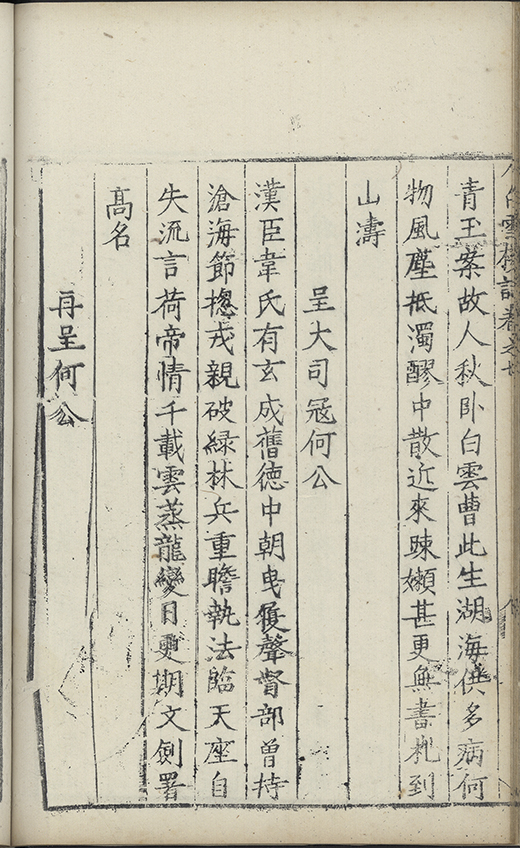 白雲樓詩卷之七
青玉案故人秋卧白雲曹此生湖海供多病何
物風塵抵濁醪中散近來踈嬾甚更無書札到
山濤
呈大司冦何公
漢臣韋氏有玄成舊德中朝曳履聲督部曽持
滄海節揔戎親破綠林兵重瞻執法臨天座自
失流言荷帝情千載雲蒸龍變日更期文劍署
髙名
再呈何公